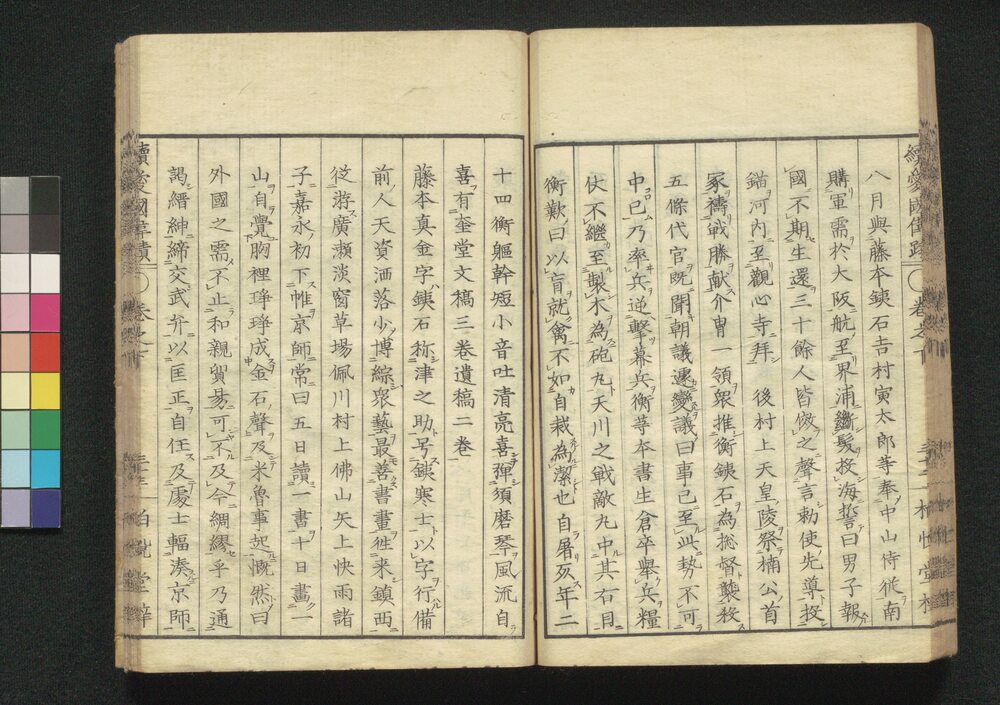 八月與藤本鉄石吉村寅太郎等奉中山侍従南
購軍需於大阪航至界浦斷髮投海誓曰男子報
國不期生還三十餘人皆傚之聲言勅使先導投
錨河内至觀心寺拜　後村上天皇陵祭楠公首
冢禱戦勝献介冑一領衆推衡鉄石為総督襲殺
五條代官既聞朝議遽變議曰事已至此勢不可
中已乃率兵逆擊幕兵衡等本書生倉卒舉兵糧
仗不繼至製木為砲丸天川之戦敵丸中其右目
衡歎曰以盲就禽不如自裁為潔也自屠死年二
十四衡軀幹短小音吐清亮喜彈須磨琴風流自
喜有奎堂文稿三巻遺稿二巻
藤本真金字鉄石称津之助号鉄寒士以字行備
前人天資洒落少博綜衆藝最善書畫徃来鎮西
從游廣瀬淡窗草場佩川村上佛山矢上快雨諸
子嘉永初下帷京師常曰五日讀一書十日畫一
山自覺胸裡琤琤成金石聲及米魯事起慨然曰
外國之需不止和親貿易可不及今綢繆乎乃通
謁縉紳締交武弁以匡正自任及處士輻湊京師
卷之下